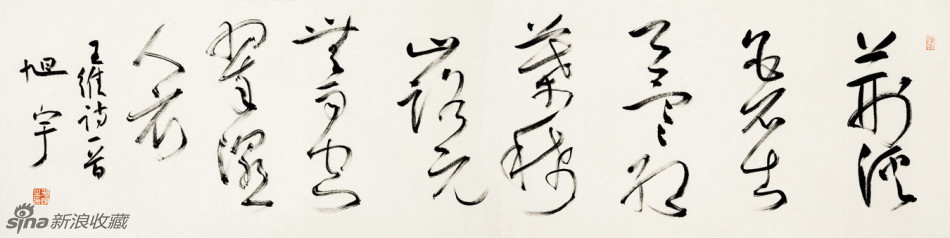 荆溪
白石出
天寒紅
葉稀
山路元
無雨空
翠濕
人衣
王維詩一首
旭宇
sina新浪收藏